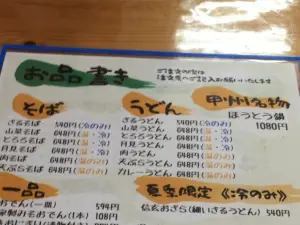 お品書き
ご注文の際は
注文票へご記入お願いいたします
そば
ざるそば 540円(冷のみ)
山菜そば 648円(温・冷)
とろろそば 648円(温・冷)
月見そば 648円(温・冷)
肉そば 648円(温のみ)
天ぷらそば 648円(温のみ)
うどん
ざるうどん 540円(冷のみ)
山菜うどん 648円(温・冷)
とろろうどん 648円(温・冷)
月見うどん 648円(温・冷)
肉うどん 648円(温のみ)
天ぷらうどん 648円(温のみ)
カレーうどん 648円(温のみ)
甲州名物
ほうとう鍋
1080円
一品
おでん(一皿) 594円
みそおでん(1本) 108円
夏季限定《冷のみ》
信玄おざら(細いざるうどん) 540円